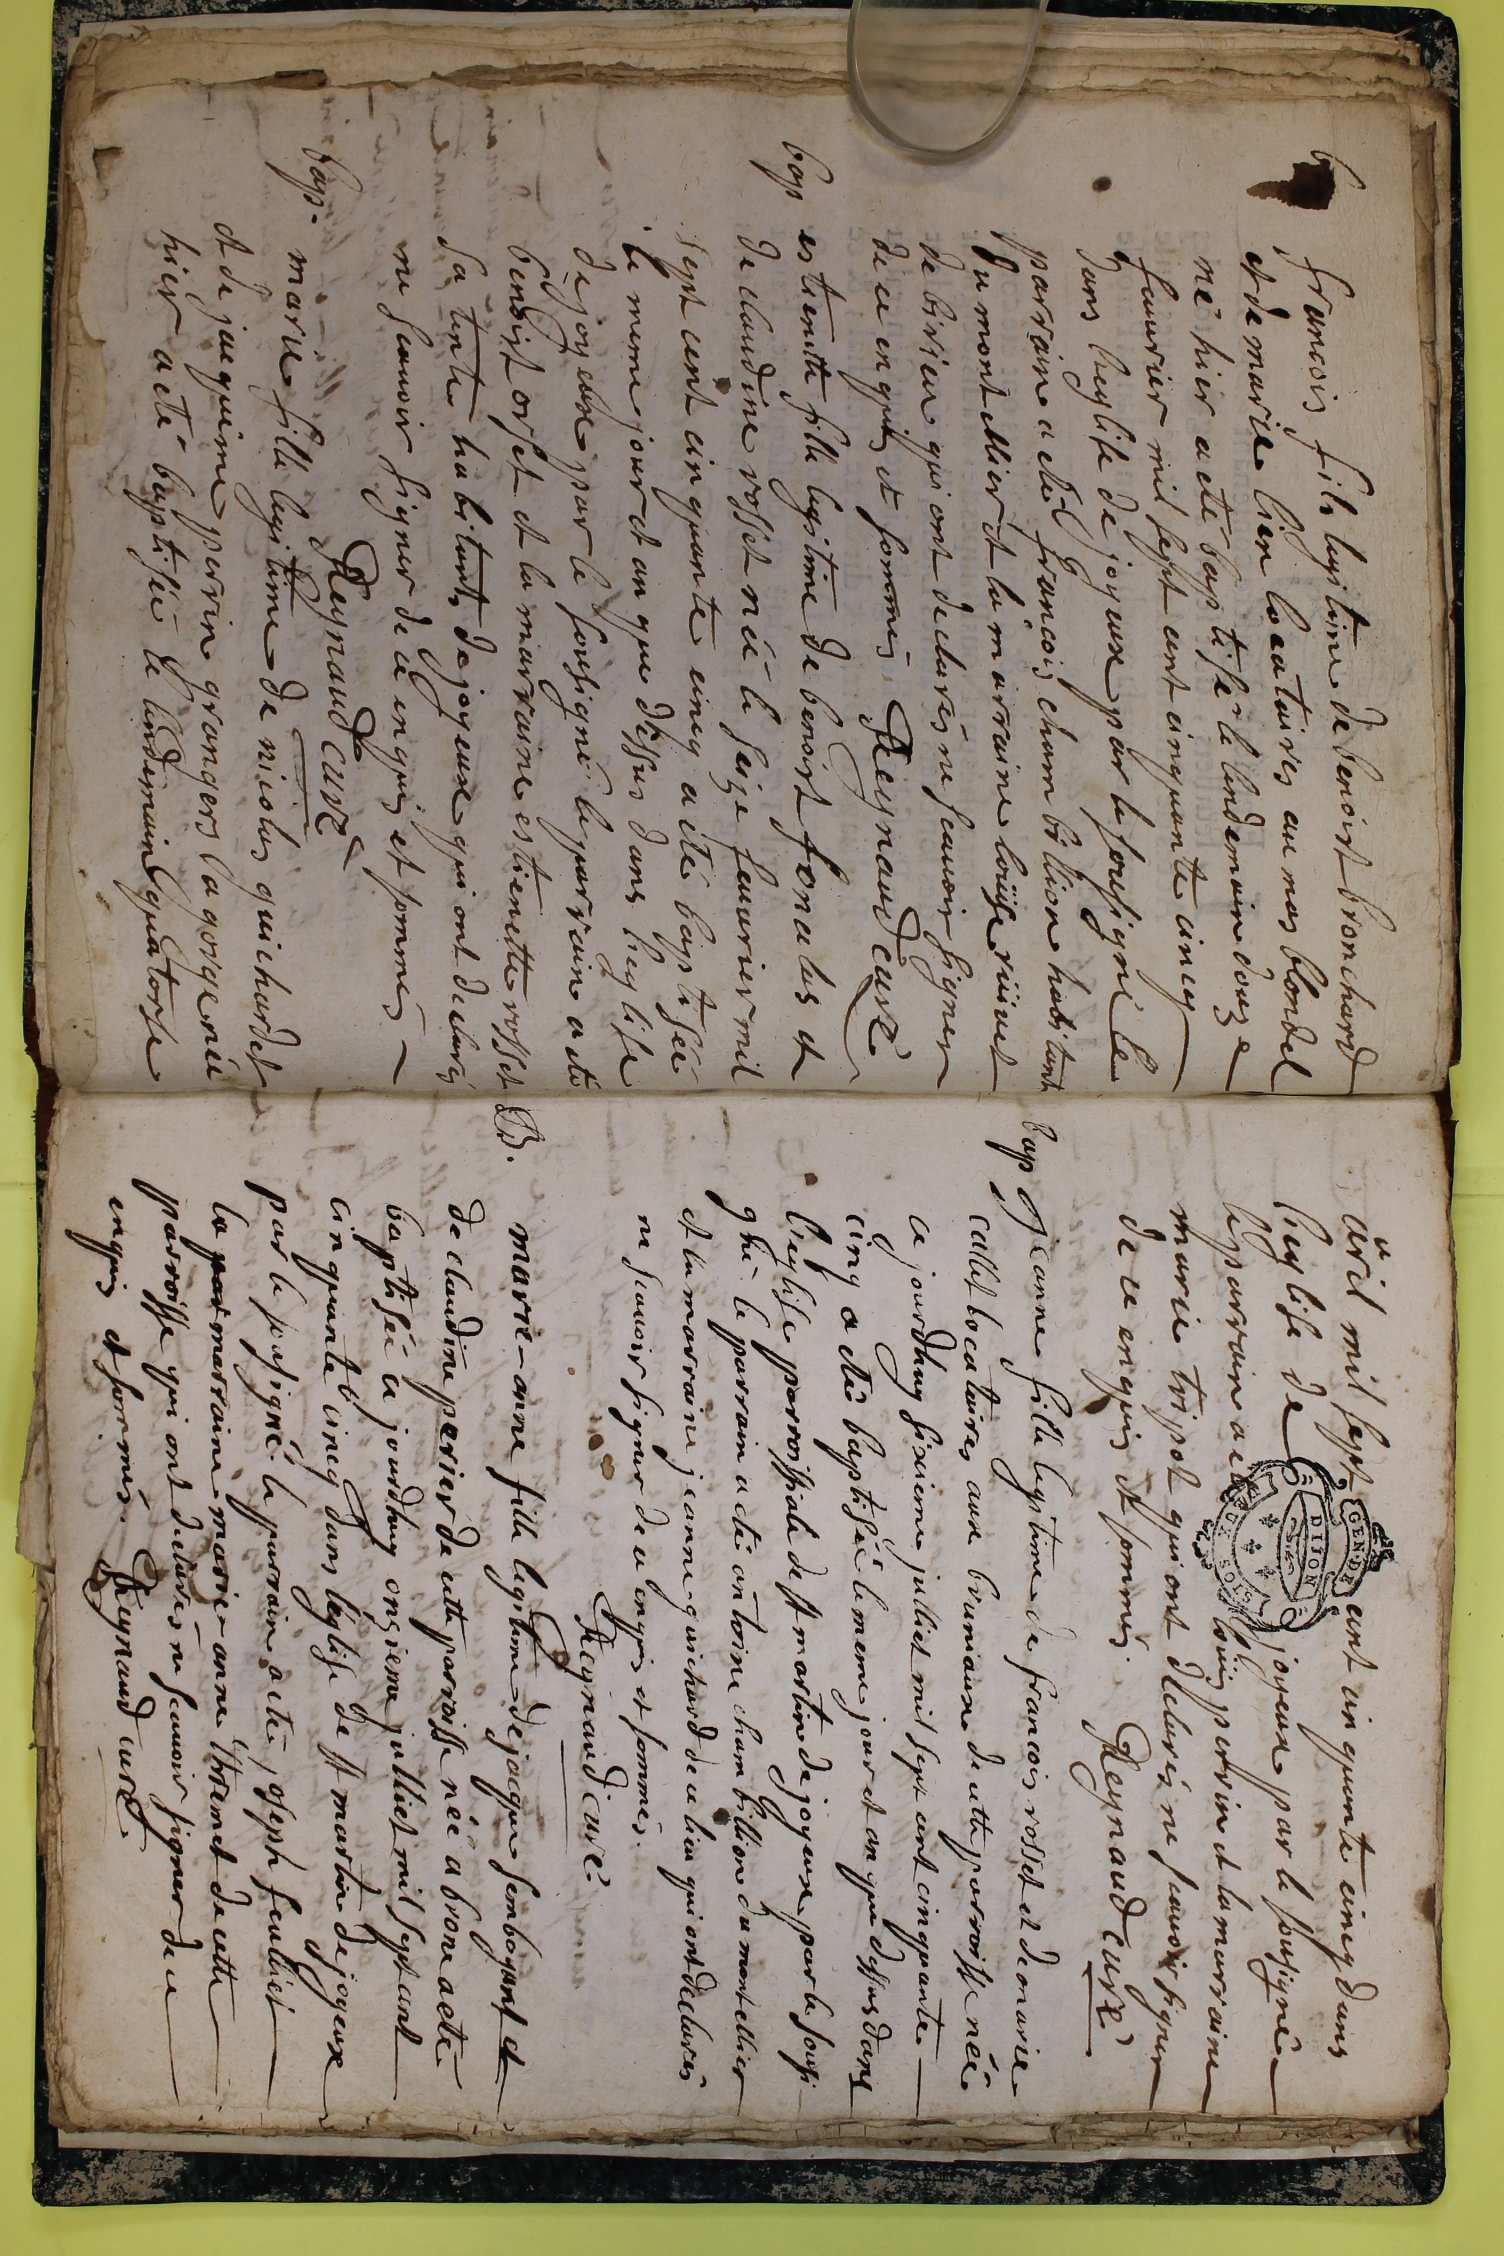 b
francois fils legitime de benoist bronchard
et de marie lien locataires au mas blondel
né hier a eté baptisé le lendemain douze
feuvrier mil sept cent cinquante cincq
dans leglise de joyeux par le sousigné le
parrain a eté francois chambillion habitant
du montellier et la marraine louise
de birieu qui ont declarés ne scauoir signer
de ce enquis et sommés Reynaud curé
bap
estienette fille legitime de benoist fonalus et
de claudine rosset née le seize feuvrier mil
sept cent cinquante cincq a eté baptisée
le meme jour et an que dessus dans leglise
de joyeux par le sousigné le parrain a eté
benoist orset et la marraine estienette rosset
sa tente habitants de joyeux qui ont declarés
ne scauoir signer de ce enquis et sommés
Reynaud curé
bap.
marie fille legitime de nicolas guichardet
et de jacqueime perrin grangers la gorge née
hier a eté baptisée le lendemain quatorse
avril mil sept cent cinquante cincq dans
leglise de joyeux par le sousigné
le parrain a eté louis perrin et la marraine
marie tripot qui ont declarés ne scauoir signer
de ce enquis et sommés. Reynaud curé
GENER
DIJON
DEUX SOLS
bap
jeanne fille legitime de francois rosset et de marie
callet locataires aux bruniaux de cette parroisse née
ce jourdhuy sixieme juillet mil sept cent cinquante
cinq a eté baptisée le meme jour et an que dessus dans
leglise parroissiale de st martin de joyeux par le sousi
gné le parrain a eté antoine chambillion du montellier
et la marraine jeanne guichard de ce lieu qui ont declarés
ne scauoir signer de ce enquis et sommés.
Reynaud curé
B.
marie-anne fille legitime de jacque sembagant et
de claudine perier de cette parroisse née a brone a eté
baptisée ce jourdhuy onzieme julliet mil sept cent
cinquante cincq dans léglise de st martin de joyeux
par le sousigné le parrain a eté joseph feulliet
la par marraine marie-anne de cette
parroisse qui ont declarés ne scauoir signer de ce
enquis et sommés. Reynaud curé.